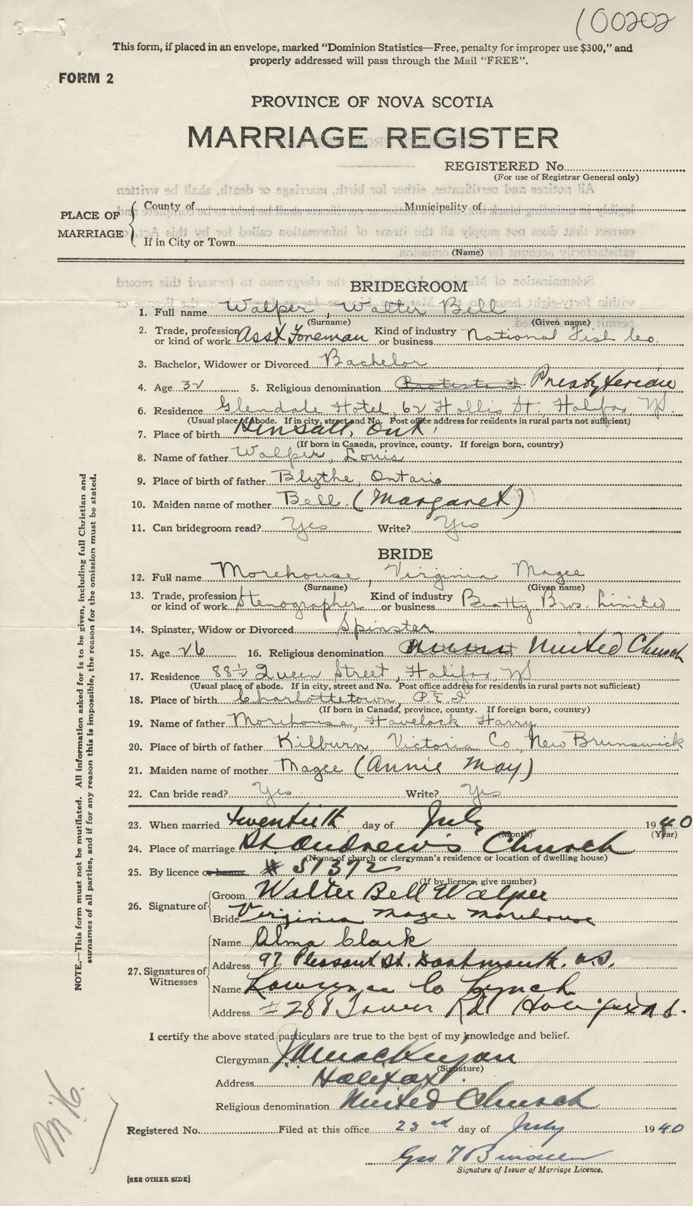 100202
This form, if placed in an envelope, marked "Dominion Statistics—Free, penalty for improper use $300," and
properly addressed will pass through the Mail "FREE".
FORM 2
PROVINCE OF NOVA SCOTIA
MARRIAGE REGISTER
REGISTERED No.
(For use of Registrar General only)
PLACE OF MARRIAGE
County of Municipality of
If in City or Town
(Name)
BRIDEGROOM
1. Full name Walper, Walter Bell
(Surname) (Given name)
2. Trade, profession or kind of work Asst Foreman Kind of industry or business National Fish Co.
3. Bachelor, Widower or Divorced Bachelor
4. Age 32 5. Religious denomination Protestant Presbyterian
6. Residence Glendale Hotel, 62 Hollis St, Halifax NS
(Usual place of abode. If in city, street and No. Post office address for residents in rural parts not sufficient)
7. Place of birth Hensall, Ont.
(If born in Canada, province, county. If foreign born, country)
8. Name of father Walper, Louis
9. Place of birth of father Blythe, Ontario
10. Maiden name of mother Bell (Margaret)
11. Can bridegroom read? Yes Write? Yes
BRIDE
12. Full name Morehouse, Virginia Magee
(Surname) (Given name)
13. Trade, profession or kind of work Stenographer Kind of industry or business Beatty Bros. Limited
14. Spinster, Widow or Divorced Spinster
15. Age 26 16. Religious denomination United Church
17. Residence 88½ Queen Street, Halifax, NS
(Usual place of abode. If in city, street and No. Post office address for residents in rural parts not sufficient)
18. Place of birth Charlottetown, P.E.I.
(If born in Canada, province, county. If foreign born, country)
19. Name of father Morehouse, Havelock Harry
20. Place of birth of father Kilburn, Victoria Co, New Brunswick
21. Maiden name of mother Magee (Annie May)
22. Can bride read? Yes Write? Yes
23. When married twentieth day of July 1940
(Month) (Year)
24. Place of marriage St. Andrew's Church
(Name of church or clergyman's residence or location of dwelling house)
25. By licence or banns # 51372
(If by licence, give number)
26. Signature of
Groom Walter Bell Walper
Bride Virginia Magee Morehouse
27. Signatures of Witnesses
Name Alma Clark
Address 97 Pleasant St. Dartmouth. N.S.
Name Lawrence Co Lynch
Address 288 Tower Rd Halifax N.S.
I certify the above stated particulars are true to the best of my knowledge and belief.
Clergyman
(Signature)
Address Halifax
Religious denomination United Church
Registered No. Filed at this office 23rd day of July 1940
Geo
Signature of Issuer of Marriage Licence.
[SEE OTHER SIDE]
NOTE.—This form must not be mutilated. All information asked for is to be given, including full Christian and
surnames of all parties, and if for any reason this is impossible, the reason for the omission must be stated.